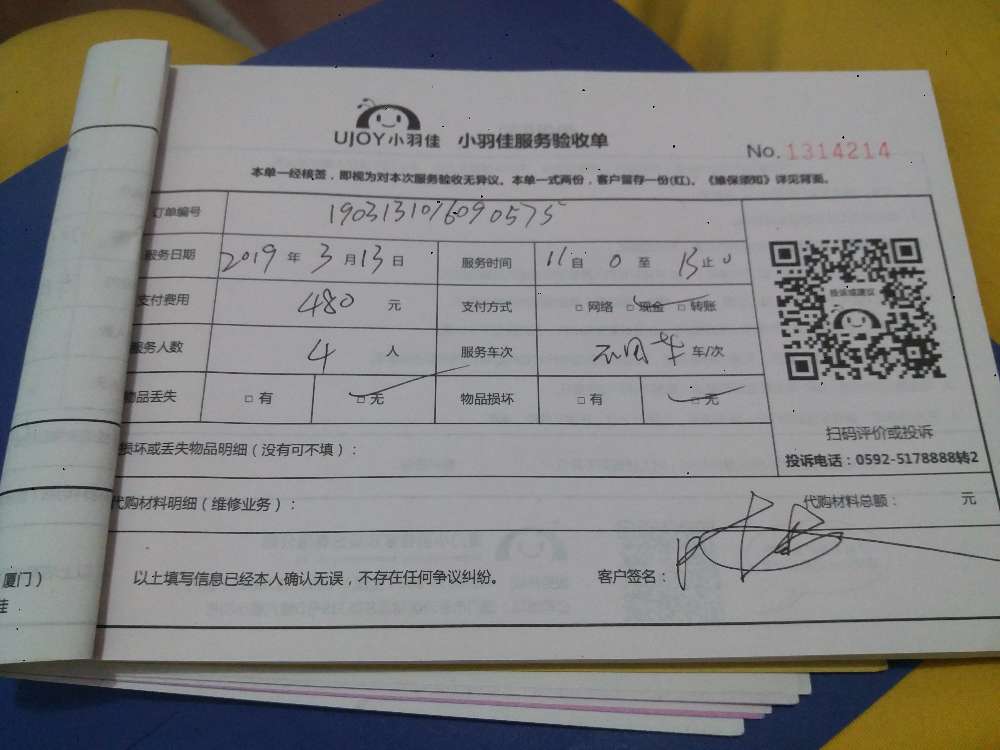 UJOY小羽佳 小羽佳服务验收单
No.1314214
本单一经核签，即视为对本次服务验收无异议。本单一式两份，客户留存一份(红)。《维保须知》详见背面。
订单编号 1903131016090575
服务日期 2019 年 3 月 13 日 服务时间 11 自 0 至 13 止 0
支付费用 480 元 支付方式 □ 网络 □ 现金 □ 转账
服务人数 4 人 服务车次 不用车 车/次
物品丢失 □ 有 □ 无 物品损坏 □ 有 □ 无
投诉或建议
扫码评价或投诉
投诉电话：0592-5178888转2
损坏或丢失物品明细（没有可不填）：
代购材料明细（维修业务）： 代购材料总额： 元
以上填写信息已经本人确认无误，不存在任何争议纠纷。 客户签名：
厦门）
佳